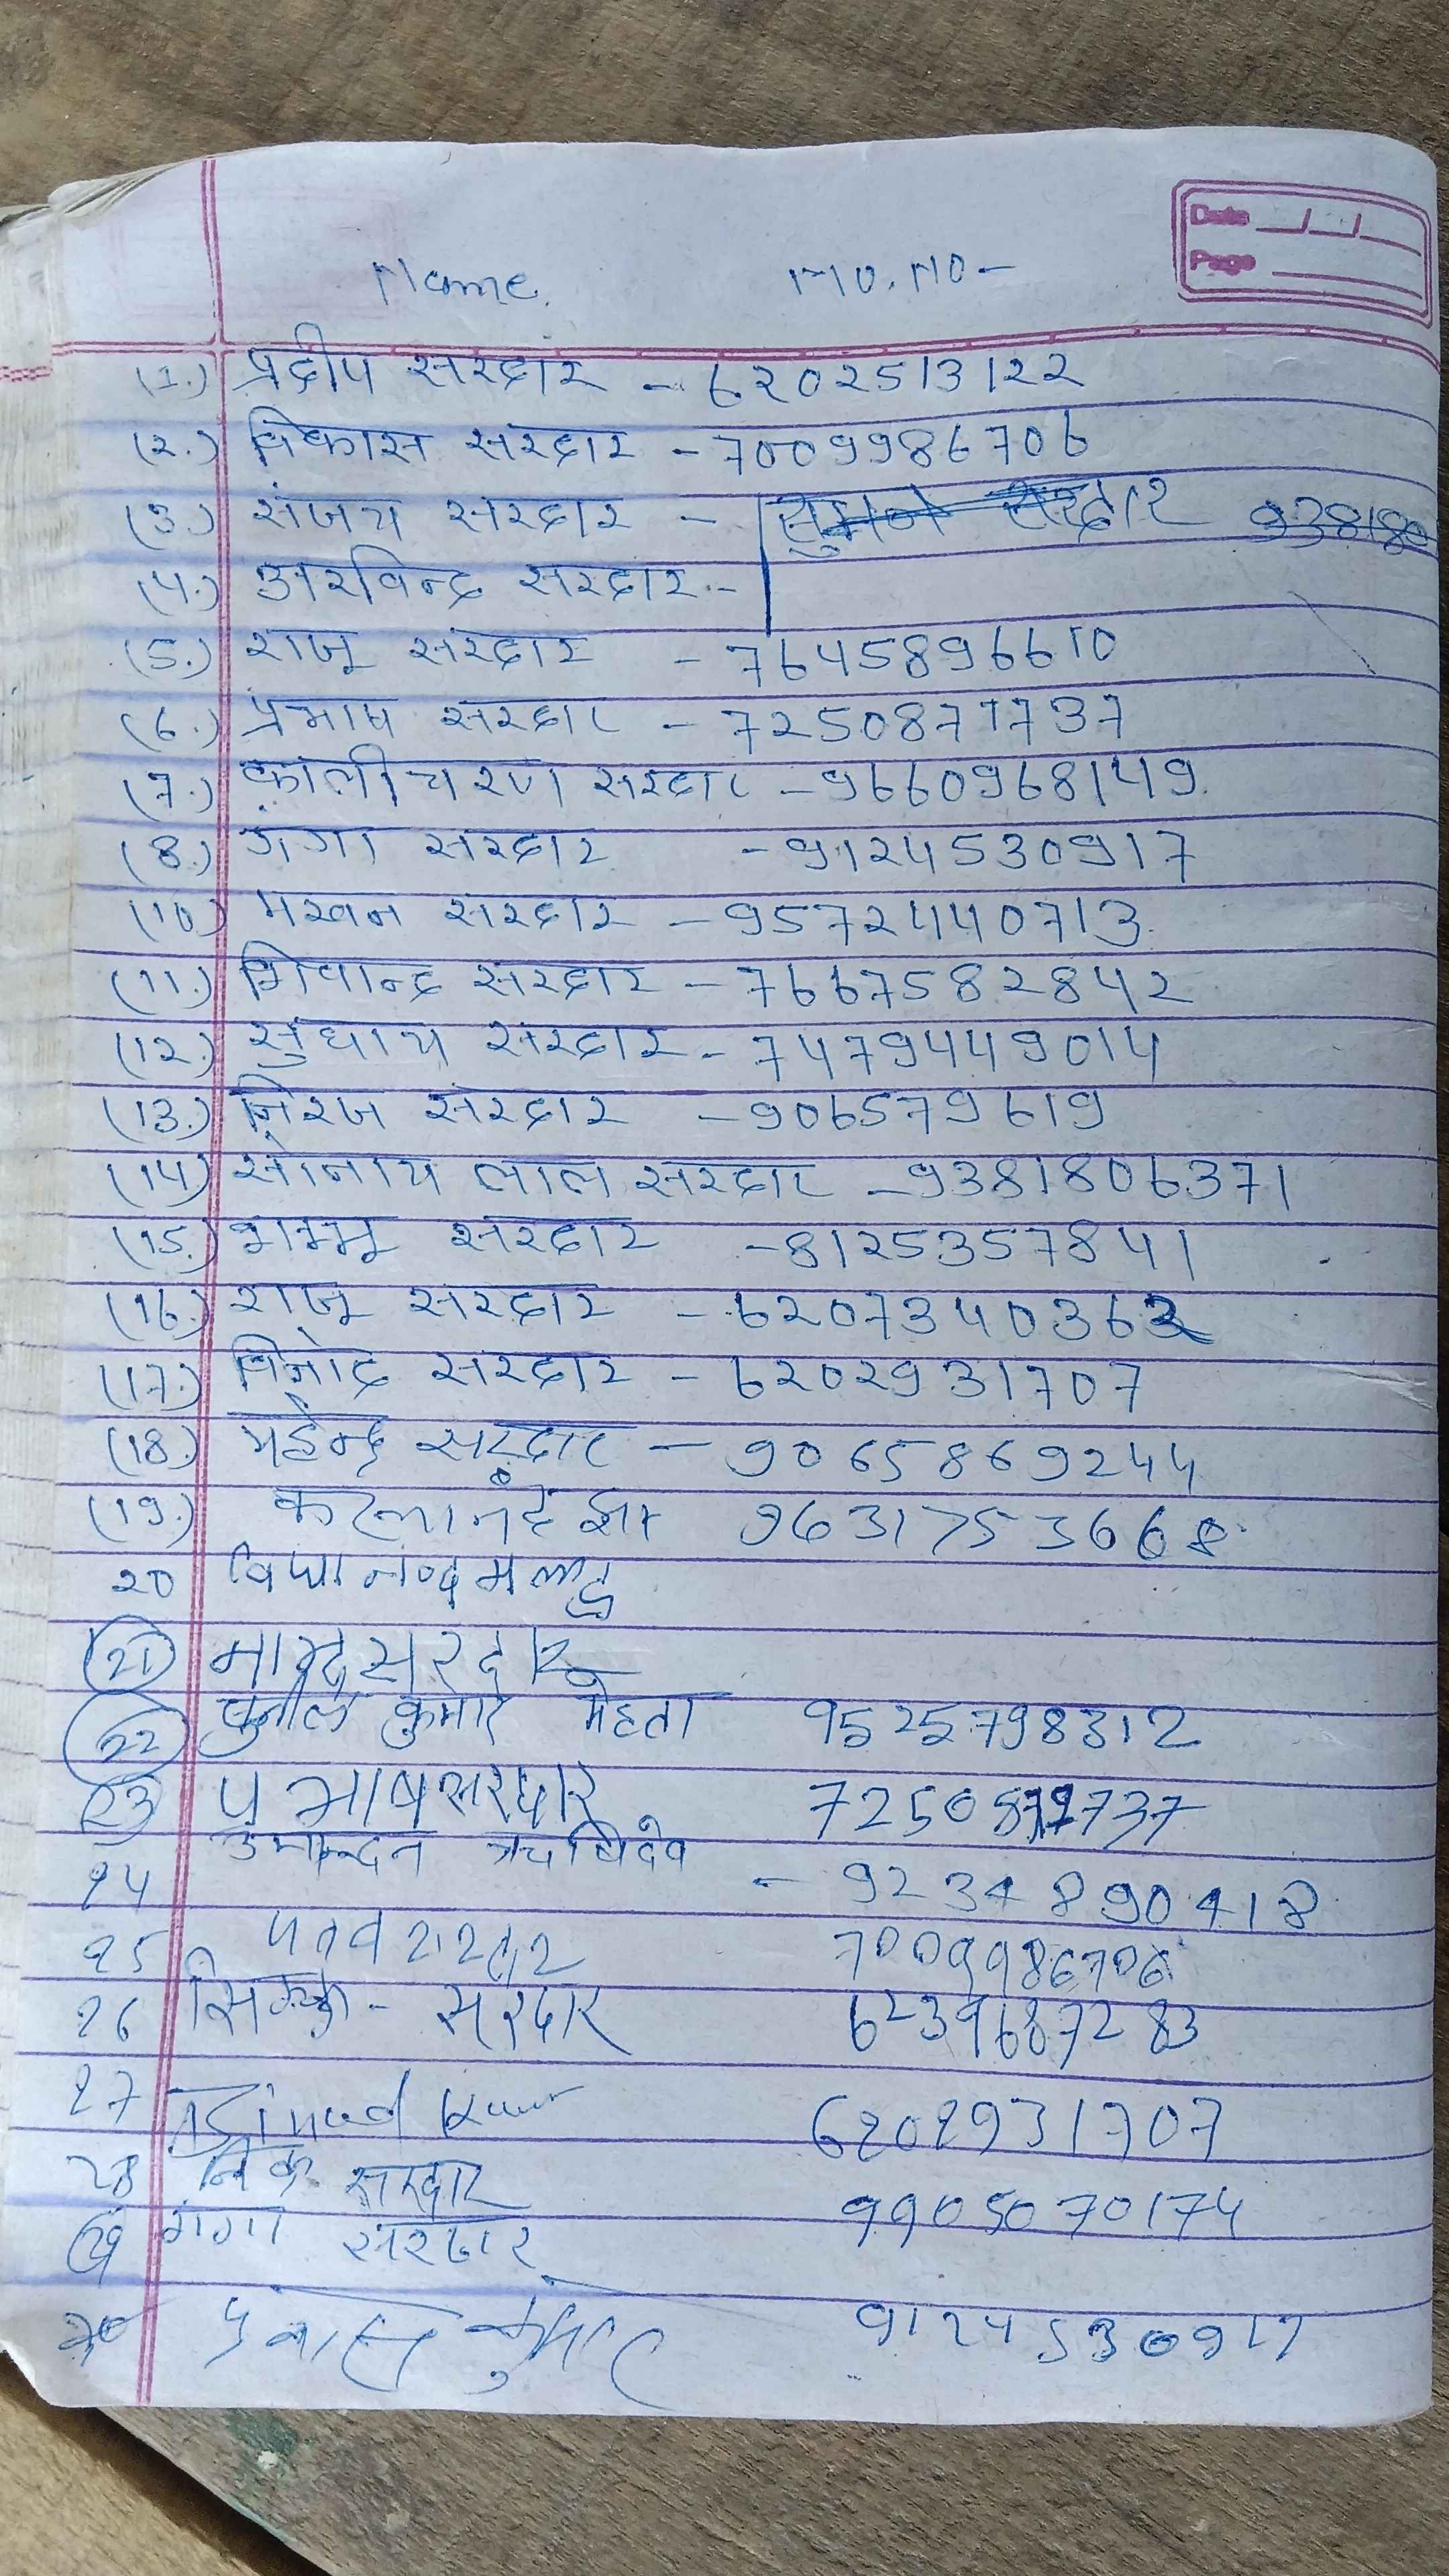 Date
Page
Name. Mo. No-
(1.) प्रदीप सरदार - 6202513122
(2.) विकास सरदार - 7009986706
(3.) संजय सरदार - सुमन सरदार 938180
(4.) अरविन्द सरदार -
(5.) राजू सरदार - 7645896610
(6.) प्रभाष सरदार - 7250877737
(7.) कालीचरण सरदार - 9660968149
(8.) गंगा सरदार - 9124530917
(10) मखन सरदार - 9572440713
(11.) सरदार - 7667582842
(12.) सरदार - 7479449014
(13.) निरज सरदार - 906579619
(14) लाल सरदार - 9381806371
(15.) सरदार - 8125357841
(16.) राजू सरदार - 6207340362
(17.) विनोद सरदार - 6202931707
(18.) महेन्द्र सरदार - 9065869244
(19.) कलानंद झा 9631753668
20
(21) सरदार
(22) कुमार मेहता 9525798312
(23) प्रभाष सरदार 7250877737
24 ऋषिदेव - 9234890418
25 7009986706
26 सरदार 6239687283
27 6202931707
28 सरदार 9905070174
(29) गंगा सरदार
30 कुमार 9124530917